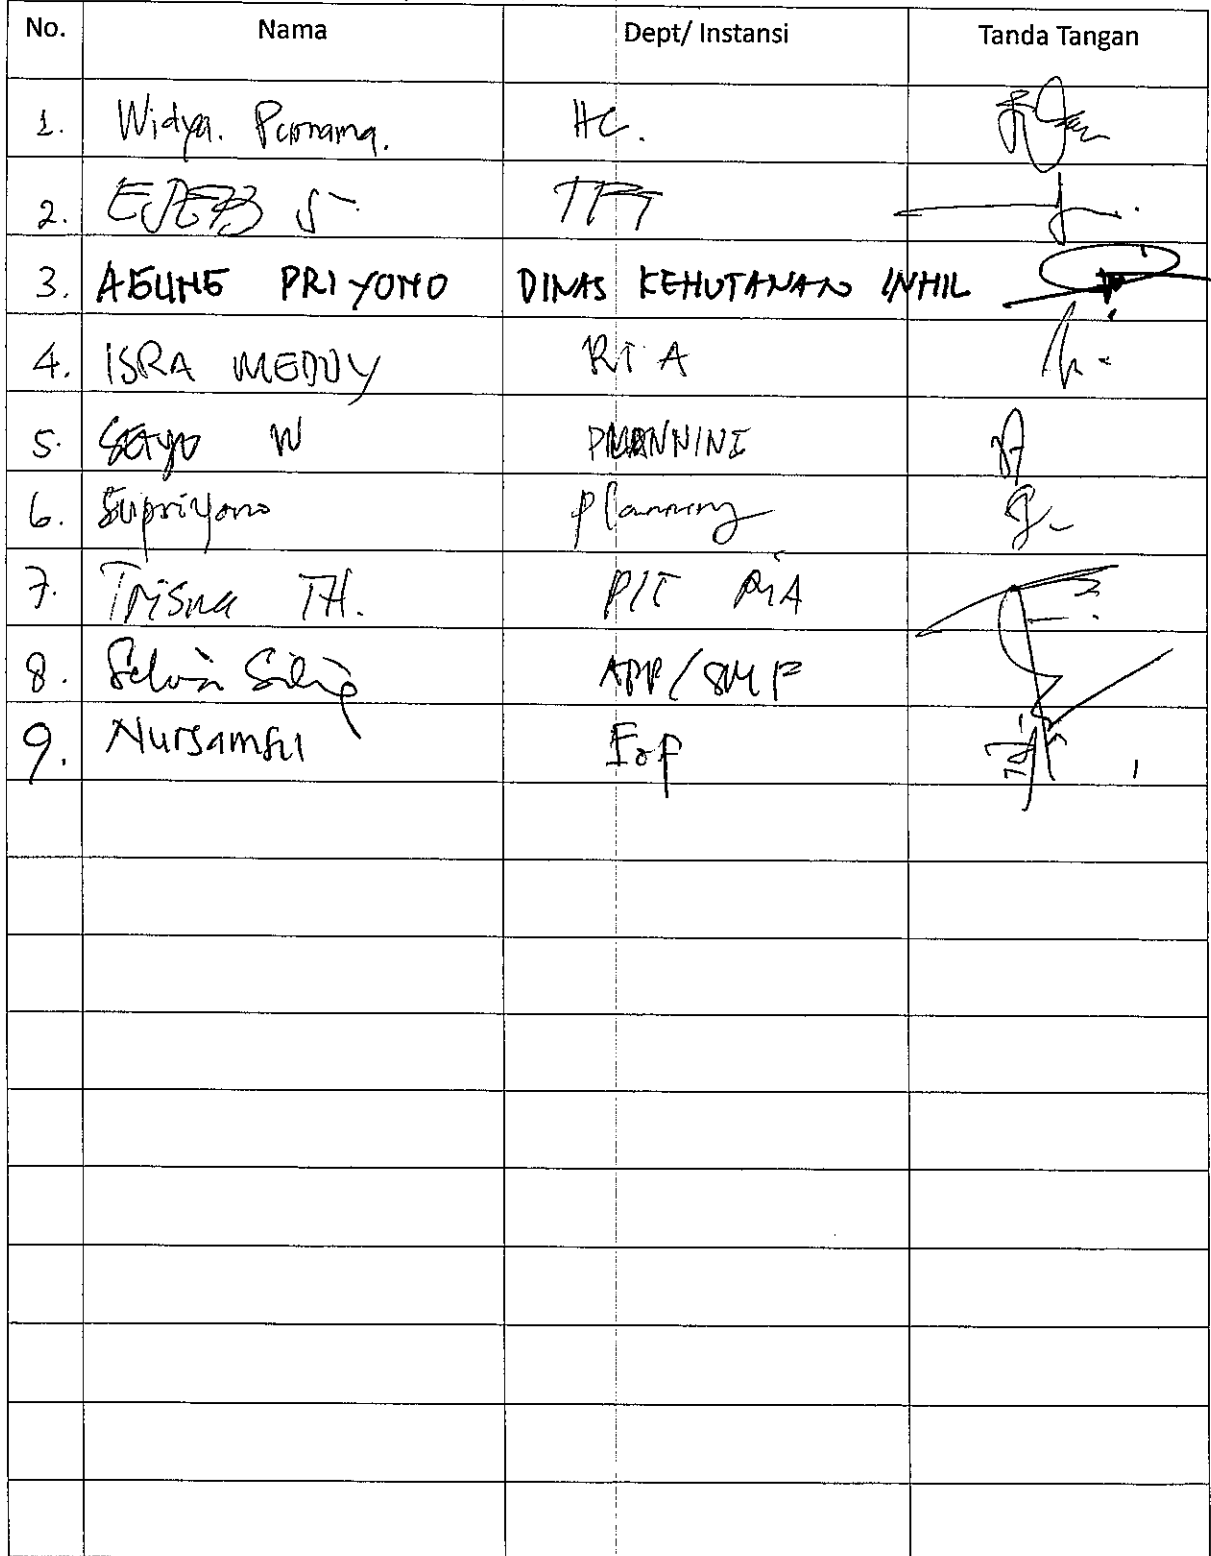 No. Nama Dept/ Instansi Tanda Tangan
1. Widya. Purnama. HC.
2.
3. AGUNG PRIYONO DINAS KEHUTANAN INHIL
4. ISRA MEDDY RIA
5. SETYO W PLANNING
6. Supriyono planning
7. Trisna TH. PIT RIA
8. APP/SMF
9. Nursamsu